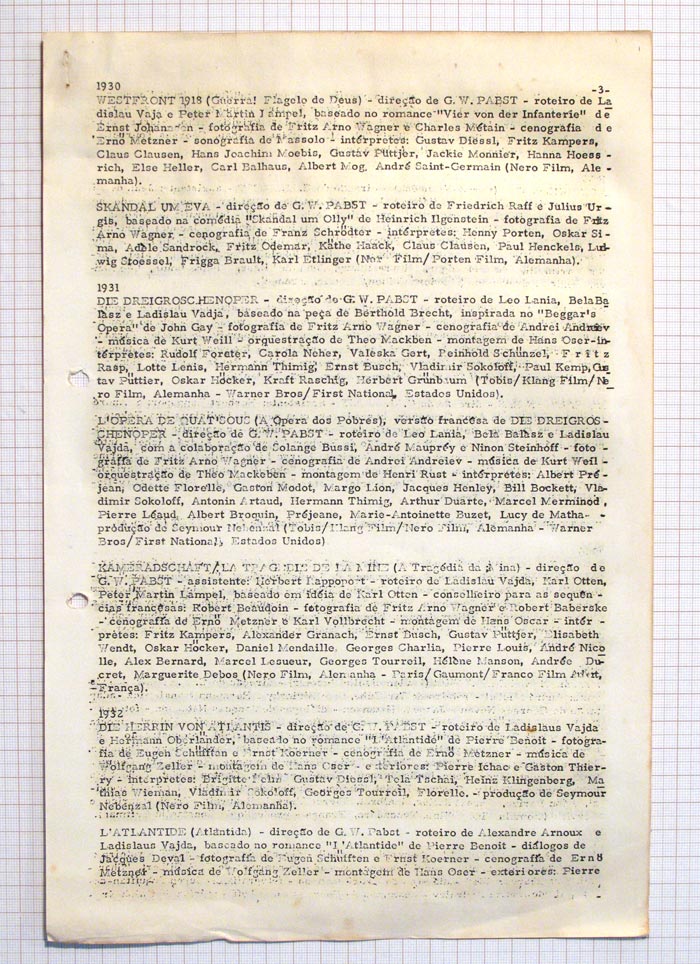 1930
-3-
WESTFRONT 1918 (Guerra! Flagelo de Deus) - direção de G. W. PABST - roteiro de La
dislau Vaja e Peter Martin Lampel, baseado no romance "Vier von der Infanterie" de
Ernst Johansen - fotografia de Fritz Arno Wagner e Charles Métain - cenografia de
Ernö Metzner - sonografia de Massolo - intérpretes: Gustav Diessl, Fritz Kampers,
Claus Clausen, Hans Joachim Moebis, Gustav Püttjer, Jackie Monnier, Hanna Hoess-
rich, Else Heller, Carl Balhaus, Albert Mog, André Saint-Germain (Nero Film, Ale-
manha).
SKANDAL UM EVA - direção de G. W. PABST - roteiro de Friedrich Raff e Julius Ur-
gis, baseado na comédia "Skandal um Olly" de Heinrich Ilgenstein - fotografia de Fritz
Arno Wagner - cenografia de Franz Schrödter - intérpretes: Henny Porten, Oskar Si-
ma, Adele Sandrock, Fritz Odemar, Käthe Haack, Claus Clausen, Paul Henckels, Lud-
wig Stoessel, Frigga Brault, Karl Etlinger (Nero Film/Porten Film, Alemanha).
1931
DIE DREIGROSCHENOPER - direção de G. W. PABST - roteiro de Leo Lania, Bela Ba
lasz e Ladislau Vadja, baseado na peça de Berthold Brecht, inspirada no "Beggar's
Opera" de John Gay - fotografia de Fritz Arno Wagner - cenografia de Andrei Andreiev
- música de Kurt Weill - orquestração de Theo Mackben - montagem de Hans Oser - in-
térpretes: Rudolf Forster, Carola Neher, Valeska Gert, Reinhold Schünzel, Fritz
Rasp, Lotte Lenis, Hermann Thimig, Ernst Busch, Vladimir Sokoloff, Paul Kemp, Gus
tav Püttier, Oskar Höcker, Kraft Raschig, Herbert Grünbaum (Tobis/Klang Film/Ne
ro Film, Alemanha - Warner Bros/First National, Estados Unidos).
L'OPERA DE QUAT'SOUS (A Ópera dos Pobres), versão francesa de DIE DREIGROS-
CHENOPER - direção de G. W. PABST - roteiro de Leo Lania, Bela Balasz e Ladislau
Vajda, com a colaboração de Solange Bussi, André Mauprey e Ninon Steinhoff - foto-
grafia de Fritz Arno Wagner - cenografia de Andrei Andreiev - música de Kurt Weil -
orquestração de Théo Mackeben - montagem de Henri Rust - intérpretes: Albert Pré-
jean, Odette Florelle, Gaston Modot, Margo Lion, Jacques Henley, Bill Bockett, Vla-
dimir Sokoloff, Antonin Artaud, Hermann Thimig, Arthur Duarte, Marcel Merminod,
Pierre Léaud, Albert Broquin, Préjeane, Marie-Antoinette Buzet, Lucy de Matha-
produção de Seymour Nebenzal (Tobis/Klang Film/Nero Film, Alemanha - Warner
Bros/First National, Estados Unidos)
KAMERADSCHAFT/LA TRAGEDIE DE LA MINE (A Tragédia da Mina) - direção de
G. W. PABST - assistente: Herbert Rapporort - roteiro de Ladislau Vajda, Karl Otten,
Peter Martin Lampel, baseado em idéia de Karl Otten - conselheiro para as sequên-
cias francesas: Robert Beaudoin - fotografia de Fritz Arno Wagner e Robert Baberske
- cenografia de Ernö Metzner e Karl Vollbrecht - montagem de Hans Oscar - intér-
pretes: Fritz Kampers, Alexander Granach, Ernst Busch, Gustav Püttjer, Elisabeth
Wendt, Oskar Höcker, Daniel Mendaille, Georges Charlia, Pierre Louis, André Nico
lle, Alex Bernard, Marcel Lesueur, Georges Tourreil, Hélène Manson, Andrée Du-
cret, Marguerite Debos (Nero Film, Alemanha - Paris/Gaumont/Franco Film
França).
1932
DIE HERRIN VON ATLANTIS - direção de G. W. PABST - roteiro de Ladislaus Vajda
e Hermann Oberländer, baseado no romance "L'Atlantide" de Pierre Benoit - fotogra-
fia de Eugen Schüfftan e Ernst Koerner - cenografia de Ernö Metzner - música de
Wolfgang Zeller - montagem de Hans Oser - exteriores: Pierre Ichac e Gaston Thier-
ry - intérpretes: Brigitte Helm, Gustav Diessl, Tela Tschai, Heinz Klingenberg, Ma
thias Wieman, Vladimir Sokoloff, Georges Tourreil, Florelle. - produção de Seymour
Nebenzal (Nero Film, Alemanha).
L'ATLANTIDE (Atlântida) - direção de G. W. Pabst - roteiro de Alexandre Arnoux e
Ladislaus Vajda, baseado no romance "L'Atlantide" de Pierre Benoit - diálogos de
Jacques Deval - fotografia de Eugen Schüfften e Ernst Koerner - cenografia de Ernö
Metzner - música de Wolfgang Zeller - montagem de Hans Oser - exteriores: Pierre